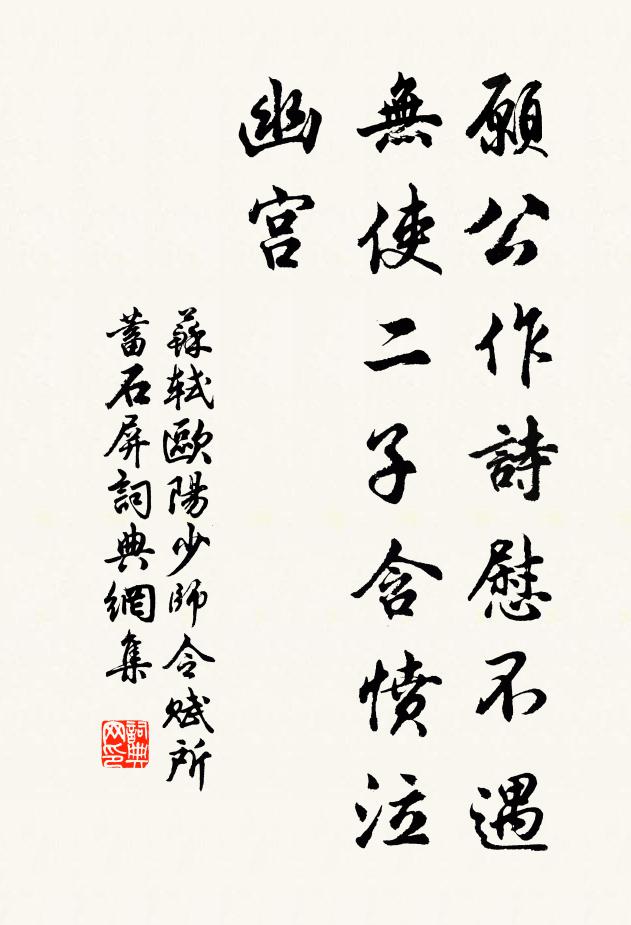 願公作詩慰不遇
無使二子含憤泣
幽宮
蘇軾歐陽少師令賦所
蓄石屏詞典網集
詞典
网印